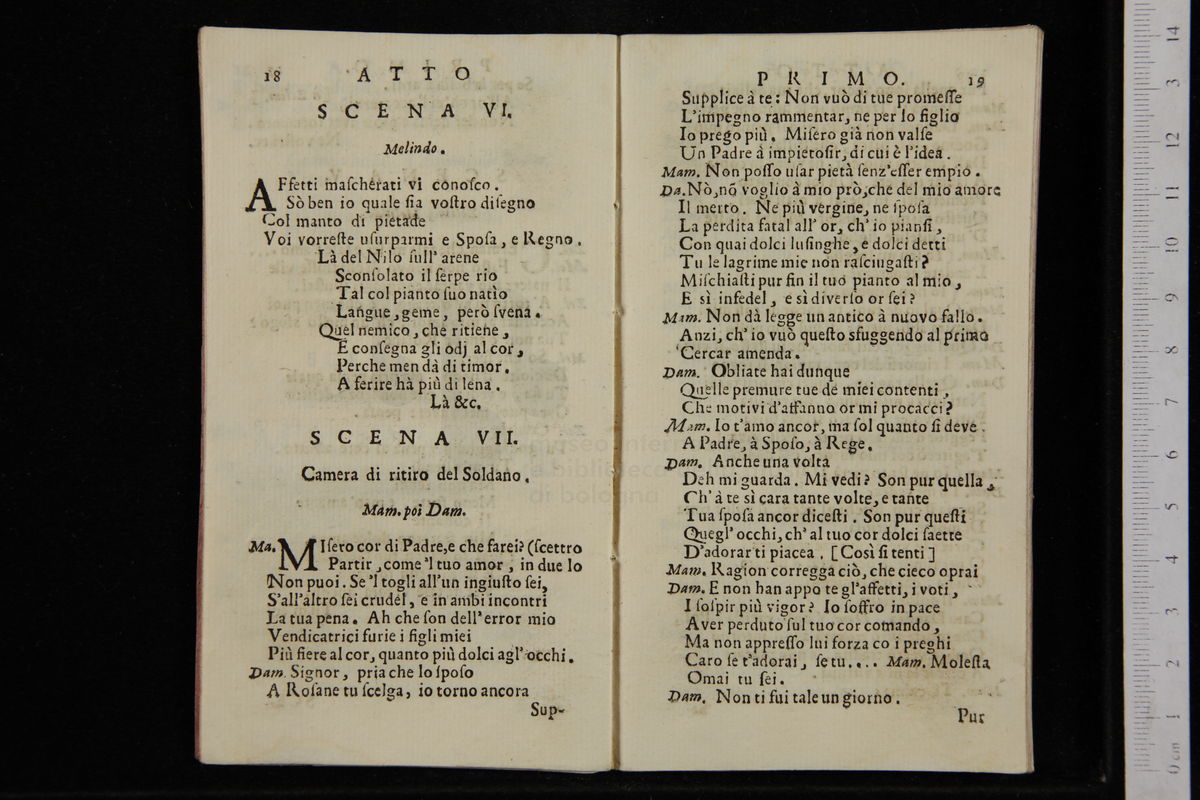 18 ATTO
SCENA VI.
Melindo.
AFfetti maſcherati vi conoſco.
Sò ben io quale ſia voſtro diſegno
Col manto di pietade
Voi vorreſte uſurparmi e Spoſa, e Regno.
Là del Nilo ſull' arene
Sconſolato il ſerpe rio
Tal col pianto ſuo natìo
Langue, geme, però ſvena.
Quel nemico, che ritiene,
E conſegna gli odj al cor,
Perche men dà di timor.
A ferire hà più di lena.
Là &c.
SCENA VII.
Camera di ritiro del Soldano.
Mam. poi Dam.
Ma. MIſero cor di Padre, e che farei? (ſcettro
Partir, come 'l tuo amor, in due lo
Non puoi. Se 'l togli all'un ingiuſto ſei,
S'all'altro ſei crudel, e in ambi incontri
La tua pena. Ah che ſon dell' error mio
Vendicatrici furie i figli miei
Più fiere al cor, quanto più dolci agl' occhi.
Dam. Signor, pria che lo ſpoſo
A Roſane tu ſcelga, io torno ancora
Sup-
PRIMO. 19
Supplice à te: Non vuò di tue promeſſe
L'impegno rammentar, ne per lo figlio
Io prego più. Miſero già non valſe
Un Padre à impietoſir, di cui è l'idea.
Mam. Non poſſo uſar pietà ſenz'eſſer empio.
Da. Nò, nō voglio à mio prò, che del mio amore
Il merto. Ne più vergine, ne ſpoſa
La perdita fatal all' or, ch' io pianſi,
Con quai dolci luſinghe, e dolci detti
Tu le lagrime mie non raſciugaſti?
Miſchiaſti pur fin il tuo pianto al mio,
E sì infedel, e sì diverſo or ſei?
Mam. Non dà legge un antico à nuovo fallo.
Anzi, ch' io vuò queſto sfuggendo al primo
Cercar amenda.
Dam. Obliate hai dunque
Quelle premure tue de miei contenti,
Che motivi d'affanno or mi procacci?
Mam. Io t'amo ancor, ma ſol quanto ſi deve
A Padre, à Spoſo, à Rege.
Dam. Anche una volta
Deh mi guarda. Mi vedi? Son pur quella,
Ch' à te sì cara tante volte, e tante
Tua ſpoſa ancor diceſti. Son pur queſti
Quegl' occhi, ch' al tuo cor dolci ſaette
D'adorarti piacea. [Così ſi tenti]
Mam. Ragion corregga ciò, che cieco oprai
Dam. E non han appo te gl'affetti, i voti,
I ſoſpir più vigor? Io ſoffro in pace
Aver perduto ſul tuo cor comando,
Ma non appreſſo lui forza co i preghi
Caro ſe t'adorai, ſe tu.... Mam. Moleſta
Omai tu ſei.
Dam. Non ti fui tale un giorno.
Pur